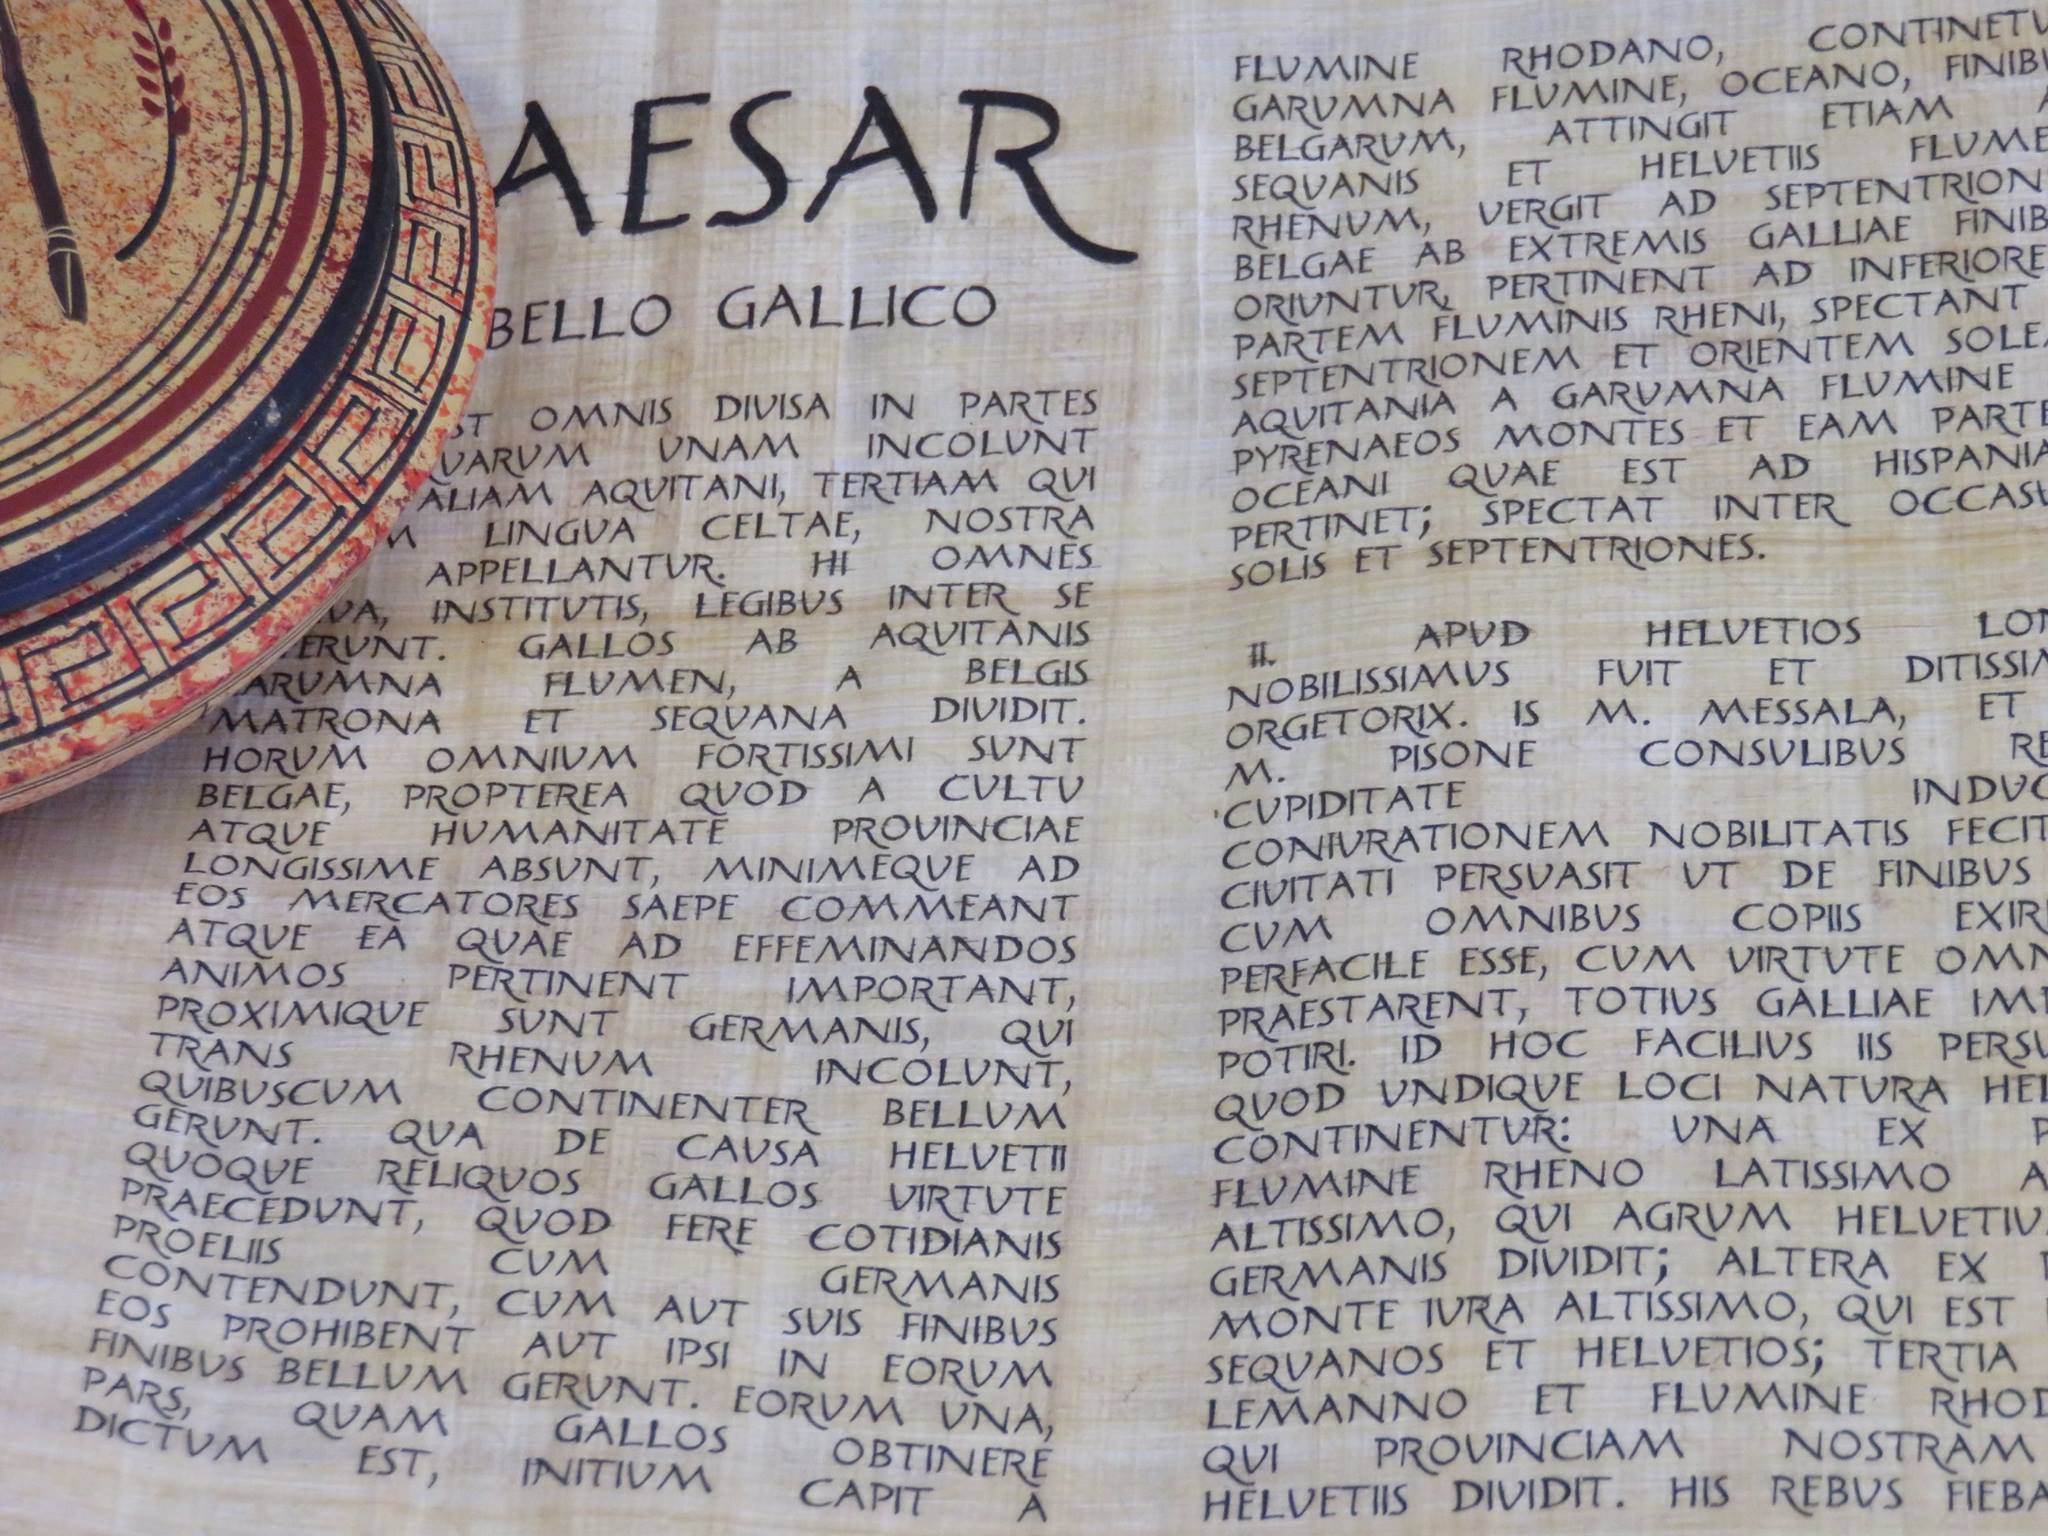 AESAR
BELLO GALLICO
ST OMNIS DIVISA IN PARTES
UARUM UNAM INCOLUNT
ALIAM AQUITANI, TERTIAM QUI
M LINGUA CELTAE, NOSTRA
APPELLANTUR. HI OMNES
UA, INSTITUTIS, LEGIBUS INTER SE
ERUNT. GALLOS AB AQUITANIS
ARUMNA FLUMEN, A BELGIS
MATRONA ET SEQUANA DIVIDIT.
HORUM OMNIUM FORTISSIMI SUNT
BELGAE, PROPTEREA QUOD A CULTU
ATQUE HUMANITATE PROVINCIAE
LONGISSIME ABSUNT, MINIMEQUE AD
EOS MERCATORES SAEPE COMMEANT
ATQUE EA QUAE AD EFFEMINANDOS
ANIMOS PERTINENT IMPORTANT,
PROXIMIQUE SUNT GERMANIS, QUI
TRANS RHENUM INCOLUNT,
QUIBUSCUM CONTINENTER BELLUM
GERUNT. QUA DE CAUSA HELVETII
QUOQUE RELIQUOS GALLOS VIRTUTE
PRAECEDUNT, QUOD FERE COTIDIANIS
PROELIIS CUM GERMANIS
CONTENDUNT, CUM AUT SUIS FINIBUS
EOS PROHIBENT AUT IPSI IN EORUM
FINIBUS BELLUM GERUNT. EORUM UNA,
PARS, QUAM GALLOS OBTINERE
DICTUM EST, INITIUM CAPIT A
FLUMINE RHODANO, CONTINETU
GARUMNA FLUMINE, OCEANO, FINIBU
BELGARUM, ATTINGIT ETIAM A
SEQUANIS ET HELVETIIS FLUME
RHENUM, VERGIT AD SEPTENTRION
BELGAE AB EXTREMIS GALLIAE FINIB
ORIUNTUR, PERTINENT AD INFERIORE
PARTEM FLUMINIS RHENI, SPECTANT
SEPTENTRIONEM ET ORIENTEM SOLE
AQUITANIA A GARUMNA FLUMINE
PYRENAEOS MONTES ET EAM PARTE
OCEANI QUAE EST AD HISPANIA
PERTINET; SPECTAT INTER OCCASU
SOLIS ET SEPTENTRIONES.
II. APUD HELVETIOS LON
NOBILISSIMUS FUIT ET DITISSIM
ORGETORIX. IS M. MESSALA, ET
M. PISONE CONSULIBUS RE
CUPIDITATE INDUC
CONIURATIONEM NOBILITATIS FECIT
CIVITATI PERSUASIT UT DE FINIBUS
CUM OMNIBUS COPIIS EXIR
PERFACILE ESSE, CUM VIRTUTE OMN
PRAESTARENT, TOTIUS GALLIAE IM
POTIRI. ID HOC FACILIUS IIS PERSU
QUOD UNDIQUE LOCI NATURA HEL
CONTINENTUR: UNA EX P
FLUMINE RHENO LATISSIMO A
ALTISSIMO, QUI AGRUM HELVETIU
GERMANIS DIVIDIT; ALTERA EX
MONTE IURA ALTISSIMO, QUI EST
SEQUANOS ET HELVETIOS; TERTIA
LEMANNO ET FLUMINE RHOD
QUI PROVINCIAM NOSTRAM
HELVETIIS DIVIDIT. HIS REBUS FIEBA